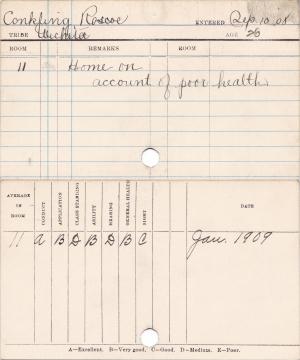 Conkling, Roscoe ENTERED Sep. 10 08
TRIBE Wichita AGE 26
ROOM REMARKS ROOM
11 Home on
account of poor health.
AVERAGE IN ROOM CONDUCT APPLICATION CLASS STANDING ABILITY MEANING GENERAL HEALTH SIGHT DATE
11 A B D B D B C Jan. 1909
A—Excellent. B—Very good. C—Good. D—Medium. E—Poor.